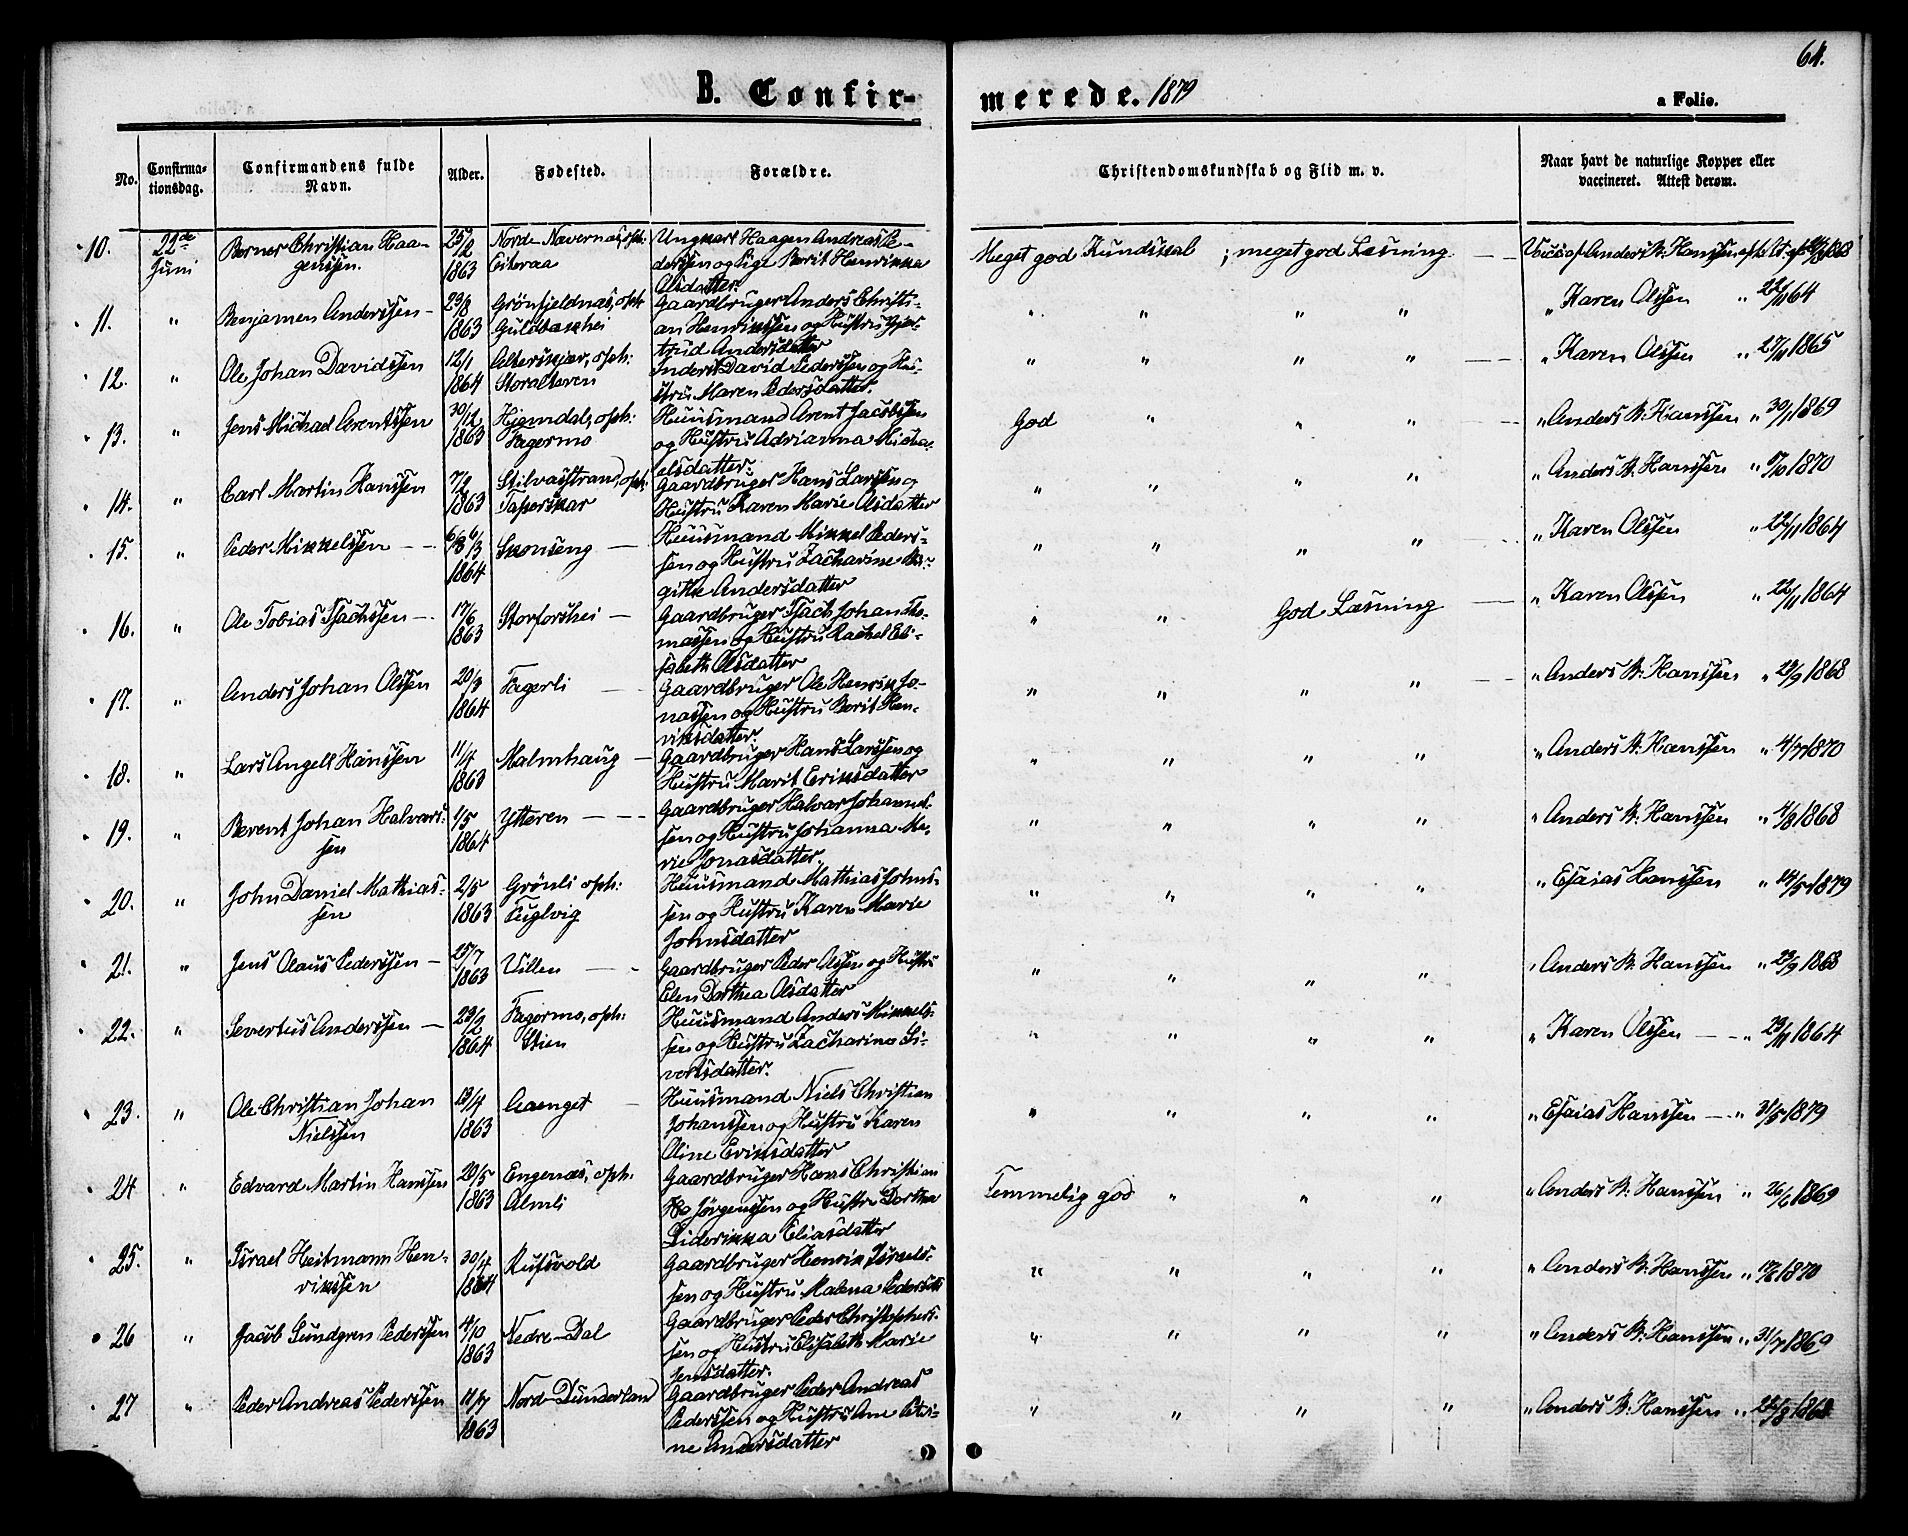 64.
B. Confir-
merede. 1879
a Folio.
No.
Confirma-
tionsdag.
Confirmandens fulde
Navn.
Alder.
Fødested.
Forældre.
Christendomskundskab og Flid m. v.
Naar havt de naturlige Kopper eller
vaccineret. Attest derom.
10. 22de Juni
Berner Christian Haa-
genssen.
1863
Ungkarl Haagen Andreas Pe-
derssen og Pige Berit Henrikka
Olsdatter.
Meget god Kundskab ; meget god Læsning
Anders B. Hanssen
11. "
Benjamen Anderssen
1863
Gaardbruger Anders Christi-
an Henrikssen og Hustru Gjer-
trud Andersdatter
" " " "
" Karen Olssen "
12. "
Ole Johan Davidssen
12/1
1864
Alterskjær, oph:
Storalteren
Inderst David Pederssen og Hu-
stru Maren Pedersdatter.
" " " "
" Karen Olssen " 27/11 1865
13. "
Jens Michael Arentssen
30/12
1863
oph:
Fagermo
Huusmand Arent Jacobssen
og Hustru Adrianna Micha-
elsdatter.
God " " "
" Anders B. Hanssen " 1869
14. "
Carl Martin Hanssen
7/2
1863
Stilvasstrand, oph:
Gaardbruger Hans Larssen og
Hustru Karen Marie Olsdatter
" " " "
" Anders B. Hanssen " 1870
15. "
Peder Mikkelssen
1864
Skonseng
Huusmand Mikkel Peders-
sen og Hustru Zacharine Bir-
gitte Andersdatter
" " " "
" Karen Olssen " 22/11 1864
16. "
Ole Tobias Isachssen
17/6
1863
Storforshei
Gaardbruger Isach Johan Tho-
massen og Hustru Rachel Eli-
sabeth Olsdatter
" " God Læsning
" Karen Olssen " 22/11 1864
17. "
Anders Johan Olssen
20/3
1864
Fagerli
Gaardbruger Ole Henrik Jo-
nassen og Hustru Berit Hen-
riksdatter.
" " " "
" Anders B. Hanssen " 1868
18. "
Lars Angell Hanssen
11/4
1863
Malmhaug
Gaardbruger Hans Larssen og
Hustru Marit Eriksdatter
" " " "
" Anders B. Hanssen " 4/7 1870
19. "
Berent Johan Halvors-
sen
1/5
1864
Ytteren
Gaardbruger Halvor Johannes-
sen og Hustru Johanna Ma-
rie Jonasdatter.
" " " "
" Anders B. Hanssen " 4/8 1868
20. "
John Daniel Mathias-
sen
2/5
1863
Grönli oph:
Fuglvig
Huusmand Mathias Johns-
sen og Hustru Karen Marie
Johnsdatter
" " " "
" Esaias Hanssen " 14/5 1879
21. "
Jens Olaus Pederssen
25/7
1863
Villen
Gaardbruger Peder Olssen og Hustru
Elen Dorthea Olsdatter
" " " "
" Anders B. Hanssen " 1868
22. "
Severtus Anderssen
1864
Fagermo, oph:
Stien
Huusmand Anders Mikkels-
sen og Hustru Zacharina Si-
vertsdatter.
" " " "
" Karen Olssen " 1864
23. "
Ole Christian Johan
Nielssen
13/4
1863
Aaenget
Huusmand Niels Christian
Johanssen og Hustru Karen
Oline Eriksdatter
" " " "
" Esaias Hanssen " 31/5 1879
24 "
Edvard Martin Hanssen
20/5
1863
Engenæs, oph:
Almli
Gaardbruger Hans Christian
Jørgenssen og Hustru Dorthea
Diderikka Eliasdatter
Temmelig god " " "
" Anders B. Hanssen " 26/6 1869
25. "
Israel Heitmann Hen-
rikssen
30/4
1864
Gaardbruger Henrik Israels-
sen og Hustru Malena Pedersdtr
" " " "
" Anders B. Hanssen " 1870
26 "
Jacob Sundgren Pederssen
4/10
1863
Nedre-Dal
Gaardbruger Peder Christophers-
sen og Hustru Elisabeth Marie
Jensdatter.
" " " "
" Anders B. Hanssen " 31/7 1869
27 "
Peder Andreas Pederssen
11/7
1863
Nord-Dunderland
Gaardbruger Peder Andreas
Pederssen og Hustru Ane Petri-
ne Andersdatter
" " " "
" Anders B. Hanssen "